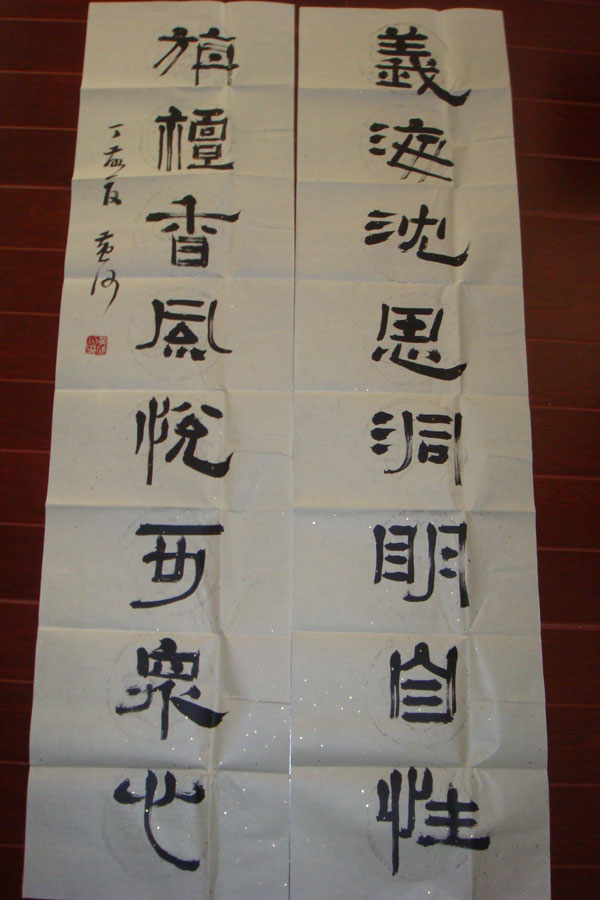 義海沈思洞明自性
旃檀香風悅可眾心
丁亥夏